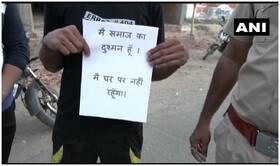 ANI
मैं समाज का
दुश्मन हूँ ।
मैं घर पर नहीं
रहूंगा।